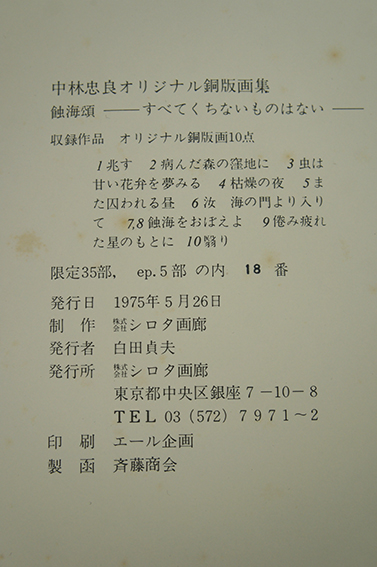 中林忠良オリジナル銅版画集
蝕海頌 ――すべてくちないものはない――
収録作品 オリジナル銅版画10点
1兆す 2病んだ森の窪地に 3虫は
甘い花弁を夢みる 4枯燥の夜 5ま
た囚われる昼 6汝 海の門より入り
て 7,8蝕海をおぼえよ 9倦み疲れ
た星のもとに 10翳り
限定35部, ep.5部 の内 18 番
発行日 1975年5月26日
制 作 株式会社シロタ画廊
発行者 白田貞夫
発行所 株式会社シロタ画廊
東京都中央区銀座7-10-8
TEL 03 (572) 7971~2
印 刷 エール企画
製 函 斉藤商会